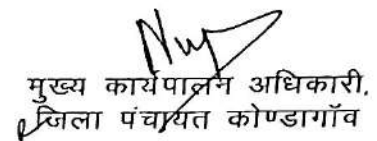 मुख्य कार्यपालन अधिकारी,
जिला पंचायत कोण्डागॉव